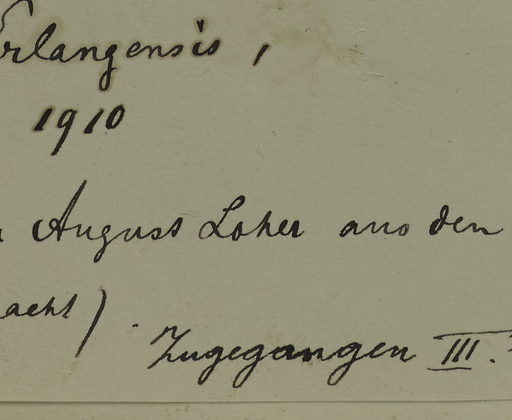 Erlangensis,
1910
August Loher aus den
acht).
Zugegangen III.